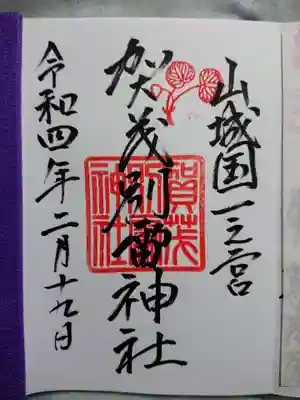 山城国一之宮
賀茂別雷神社
賀茂別雷神社
令和四年二月十九日